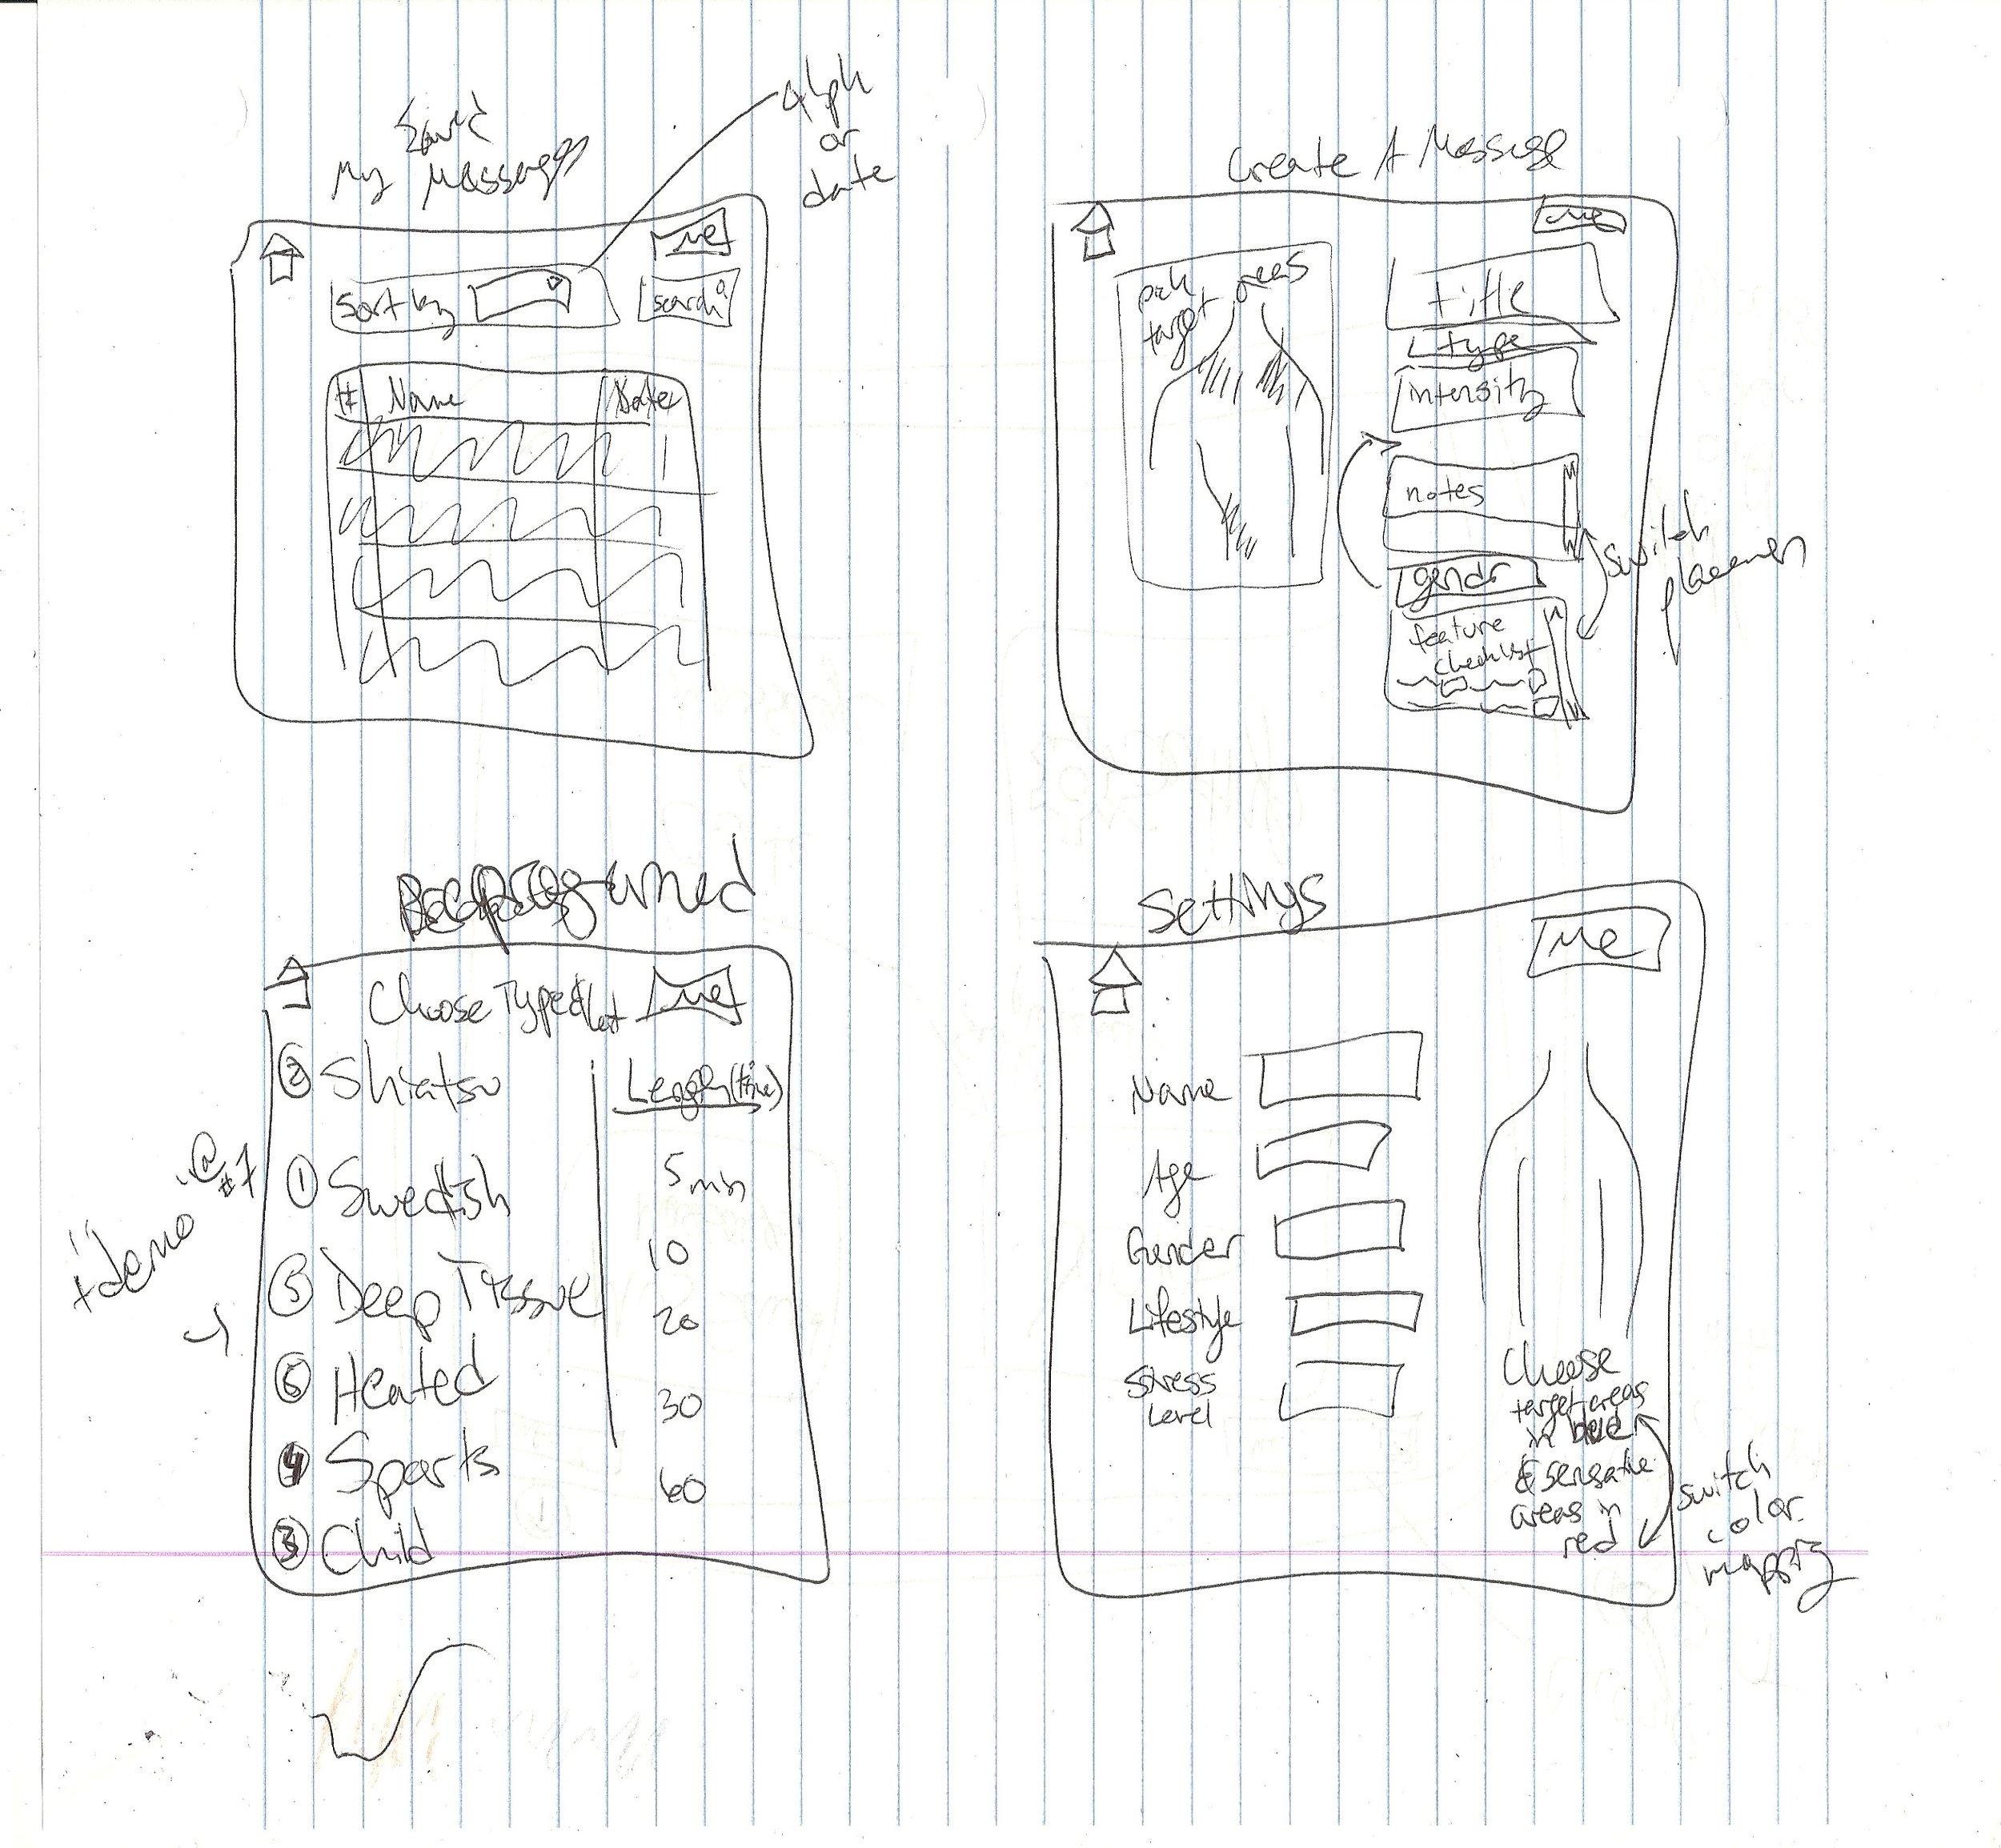 Saved
My Massages
alph
or
date
me
Sort by
search
# Name Date
Create A Massage
me
pick
target areas
title
type
intensity
notes
gender
feature
checklist
switch
Preprogrammed
Choose Type &
me
② Shiatsu
Length (time)
① Swedish
5 min
⑤ Deep Tissue
10
20
⑥ Heated
30
④ Sports
60
③ Child
+ "demo" @
#7
Settings
Me
Name
Age
Gender
Lifestyle
Stress
Level
Choose
target areas
in
&
areas in
red
switch
color
mapping